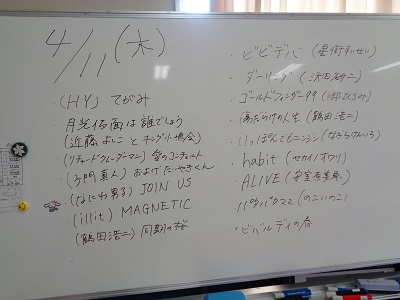 4/11(木)
・(HY) てがみ
・月光仮面は誰でしょう
(近藤よしことキング小鳩会)
・(リチャードクレーダーマン) 愛のコンチェルト
・(子門真人) およげたいやきくん
・(なにわ男子) JOIN US
・(illit) MAGNETIC
・(鶴田浩二) 同期の桜
・ビビデバ (星街すいせい)
・ダーリング (沢田研二)
・ゴールドフィンガー99 (郷ひろみ)
・傷だらけの人生 (鶴田浩二)
・いっぽんでもニンジン (なぎらけんいち)
・habit (セカイノオワリ)
・ALIVE (安室奈美恵)
・パタパタママ (のこいのこ)
・ビバルディの春